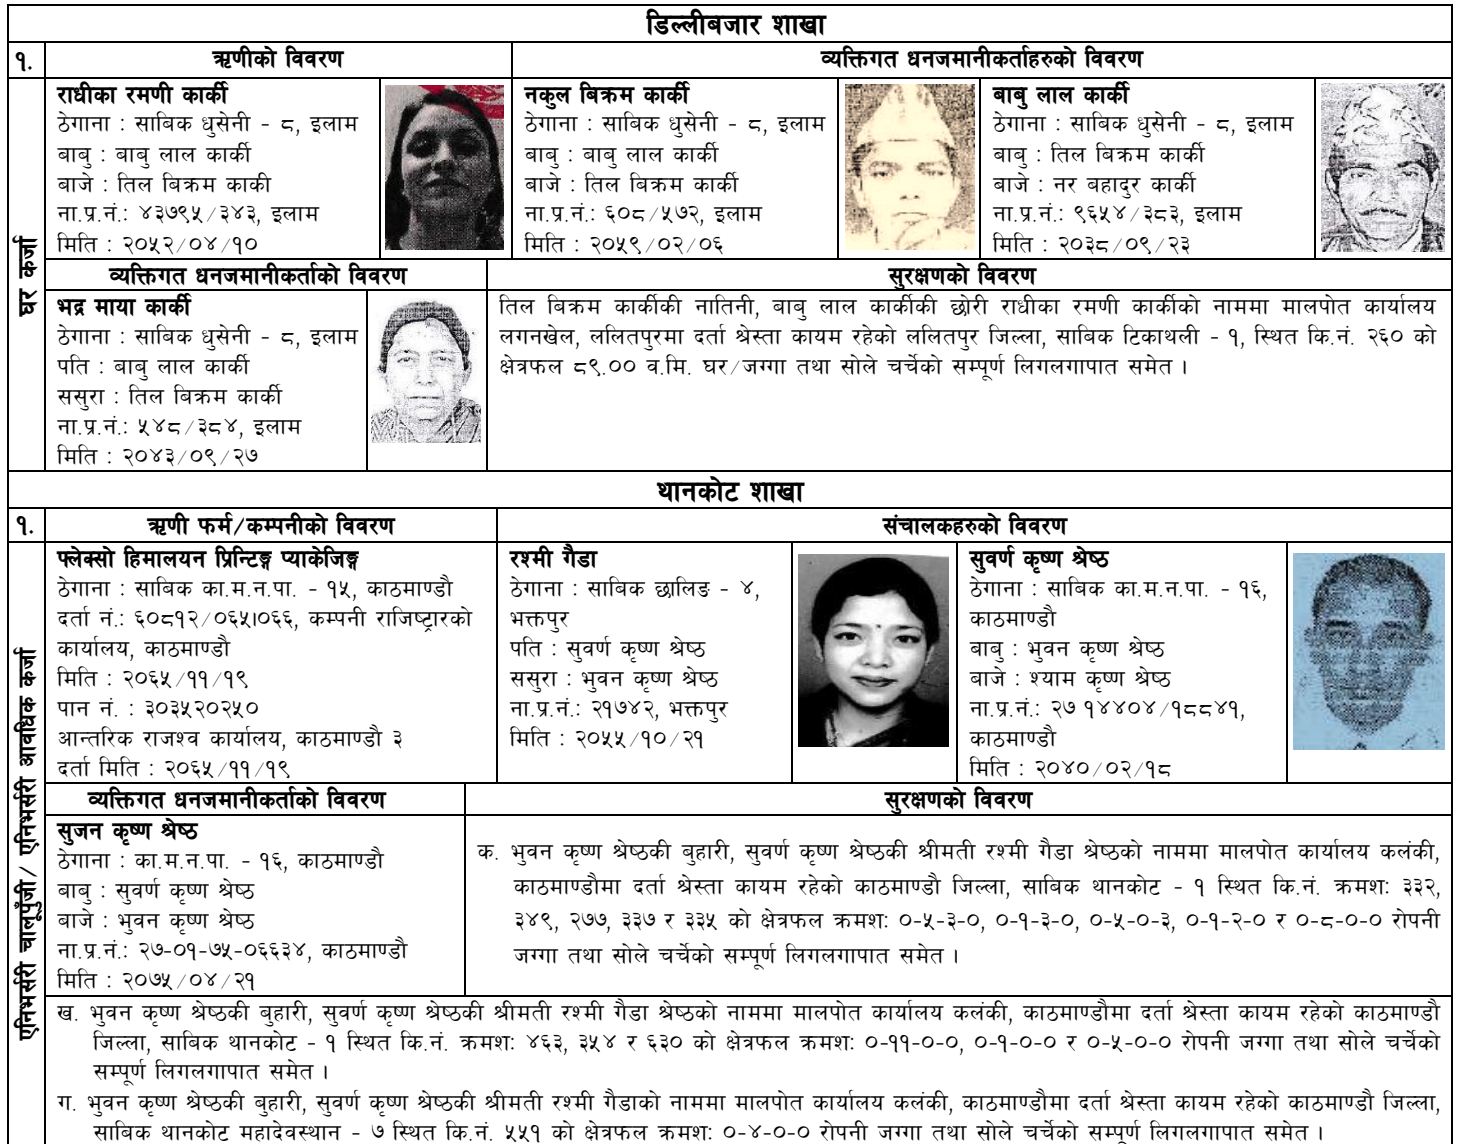 डिल्लीबजार शाखा
१.
ऋणीको विवरण
व्यक्तिगत धनजमानीकर्ताहरुको विवरण
घर कर्जा
राधीका रमणी कार्की
ठेगाना : साबिक धुसेनी - ८, इलाम
बाबु : बाबु लाल कार्की
बाजे : तिल बिक्रम काकी
ना.प्र.नं.: ४३७९५/३४३, इलाम
मिति : २०५२/०४/१०
नकुल बिक्रम कार्की
ठेगाना : साबिक धुसेनी - ८, इलाम
बाबु : बाबु लाल कार्की
बाजे : तिल बिक्रम कार्की
ना.प्र.नं.: ६०८/५७२, इलाम
मिति : २०५९/०२/०६
बाबु लाल कार्की
ठेगाना : साबिक धुसेनी - ८, इलाम
बाबु : तिल बिक्रम कार्की
बाजे : नर बहादुर कार्की
ना.प्र.नं.: ९६५४/३८३, इलाम
मिति : २०३८/०९/२३
व्यक्तिगत धनजमानीकर्ताको विवरण
सुरक्षणको विवरण
भद्र माया कार्की
ठेगाना : साबिक धुसेनी - ८, इलाम
पति : बाबु लाल कार्की
ससुरा : तिल बिक्रम कार्की
ना.प्र.नं.: ५४८/३८४, इलाम
मिति : २०४३/०९/२७
तिल बिक्रम कार्कीकी नातिनी, बाबु लाल कार्कीकी छोरी राधीका रमणी कार्कीको नाममा मालपोत कार्यालय
लगनखेल, ललितपुरमा दर्ता श्रेस्ता कायम रहेको ललितपुर जिल्ला, साबिक टिकाथली - १, स्थित कि.नं. २६० को
क्षेत्रफल ८९.०० व.मि. घर/जग्गा तथा सोले चर्चेको सम्पूर्ण लिगलगापात समेत ।
थानकोट शाखा
१.
ऋणी फर्म/कम्पनीको विवरण
संचालकहरुको विवरण
एनिभर्सरी चालूपुँजी/ एनिभर्सरी आवधिक कर्जा
फ्लेक्सो हिमालयन प्रिन्टिङ्ग प्याकेजिङ्ग
ठेगाना : साबिक का.म.न.पा. - १५, काठमाण्डौ
दर्ता नं.: ६०८१२/०६५।०६६, कम्पनी राजिष्ट्रारको
कार्यालय, काठमाण्डौ
मिति : २०६५/११/१९
पान नं. : ३०३५२०२५०
आन्तरिक राजश्व कार्यालय, काठमाण्डौ ३
दर्ता मिति : २०६५/११/१९
रश्मी गैडा
ठेगाना : साबिक छालिङ - ४,
भक्तपुर
पति : सुवर्ण कृष्ण श्रेष्ठ
ससुरा : भुवन कृष्ण श्रेष्ठ
ना.प्र.नं.: २१७४२, भक्तपुर
मिति : २०५५/१०/२१
सुवर्ण कृष्ण श्रेष्ठ
ठेगाना : साबिक का.म.न.पा. - १६,
काठमाण्डौ
बाबु : भुवन कृष्ण श्रेष्ठ
बाजे : श्याम कृष्ण श्रेष्ठ
ना.प्र.नं.: २७ १४४०४/१८८४१,
काठमाण्डौ
मिति : २०४०/०२/१८
व्यक्तिगत धनजमानीकर्ताको विवरण
सुरक्षणको विवरण
सुजन कृष्ण श्रेष्ठ
ठेगाना : का.म.न.पा. - १६, काठमाण्डौ
बाबु : सुवर्ण कृष्ण श्रेष्ठ
बाजे : भुवन कृष्ण श्रेष्ठ
ना.प्र.नं.: २७-०१-७५-०६६३४, काठमाण्डौ
मिति : २०७५/०४/२१
क. भुवन कृष्ण श्रेष्ठकी बुहारी, सुवर्ण कृष्ण श्रेष्ठकी श्रीमती रश्मी गैडा श्रेष्ठको नाममा मालपोत कार्यालय कलंकी,
काठमाण्डौमा दर्ता श्रेस्ता कायम रहेको काठमाण्डौ जिल्ला, साबिक थानकोट - १ स्थित कि.नं. क्रमशः ३३२,
३४९, २७७, ३३७ र ३३५ को क्षेत्रफल क्रमशः ०-५-३-०, ०-१-३-०, ०-५-०-३, ०-१-२-० र ०-८-०-० रोपनी
जग्गा तथा सोले चर्चेको सम्पूर्ण लिगलगापात समेत ।
ख. भुवन कृष्ण श्रेष्ठकी बुहारी, सुवर्ण कृष्ण श्रेष्ठकी श्रीमती रश्मी गैडा श्रेष्ठको नाममा मालपोत कार्यालय कलंकी, काठमाण्डौमा दर्ता श्रेस्ता कायम रहेको काठमाण्डौ
जिल्ला, साबिक थानकोट - १ स्थित कि.नं. क्रमशः ४६३, ३५४ र ६३० को क्षेत्रफल क्रमशः ०-११-०-०, ०-१-०-० र ०-५-०-० रोपनी जग्गा तथा सोले चर्चेको
सम्पूर्ण लिगलगापात समेत ।
ग. भुवन कृष्ण श्रेष्ठकी बुहारी, सुवर्ण कृष्ण श्रेष्ठकी श्रीमती रश्मी गैडाको नाममा मालपोत कार्यालय कलंकी, काठमाण्डौमा दर्ता श्रेस्ता कायम रहेको काठमाण्डौ जिल्ला,
साबिक थानकोट महादेवस्थान - ७ स्थित कि.नं. ५५१ को क्षेत्रफल क्रमशः ०-४-०-० रोपनी जग्गा तथा सोले चर्चेको सम्पूर्ण लिगलगापात समेत ।